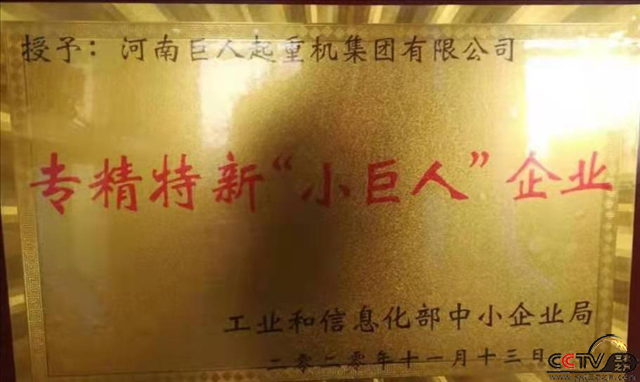 授予：河南巨人起重机集团有限公司
专精特新“小巨人”企业
工业和信息化部中小企业局
二零二零年十一月十三日
CCTV